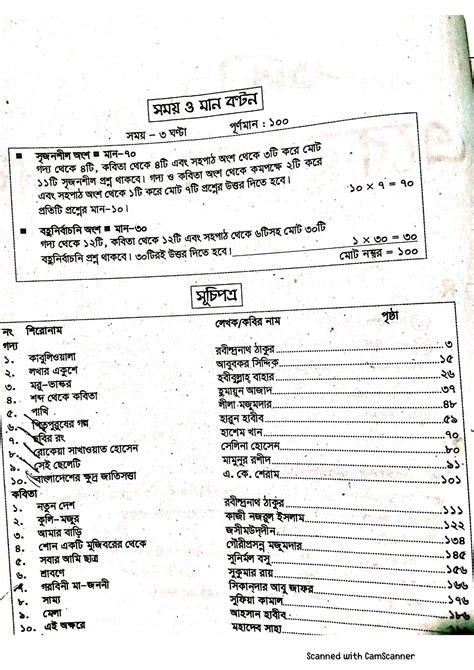 সময় ও মান বণ্টন
সময় – ৩ ঘণ্টা পূর্ণমান : ১০০
■ সৃজনশীল অংশ ■ মান–৭০
গদ্য থেকে ৪টি, কবিতা থেকে ৪টি এবং সহপাঠ অংশ থেকে ৩টি করে মোট
১১টি সৃজনশীল প্রশ্ন থাকবে। গদ্য ও কবিতা অংশ থেকে কমপক্ষে ২টি করে
এবং সহপাঠ অংশ থেকে ১টি করে মোট ৭টি প্রশ্নের উত্তর দিতে হবে।
প্রতিটি প্রশ্নের মান–১০। ১০ × ৭ = ৭০
■ বহুনির্বাচনি অংশ ■ মান–৩০
গদ্য থেকে ১২টি, কবিতা থেকে ১২টি এবং সহপাঠ থেকে ৬টিসহ মোট ৩০টি
বহুনির্বাচনি প্রশ্ন থাকবে। ৩০টিরই উত্তর দিতে হবে। ১ × ৩০ = ৩০
মোট নম্বর = ১০০
সূচিপত্র
নং শিরোনাম লেখক/কবির নাম পৃষ্ঠা
গদ্য
১. কাবুলিওয়ালা রবীন্দ্রনাথ ঠাকুর ৩
২. লখার একুশে আবুবকর সিদ্দিক ১৫
৩. মরু-ভাস্কর হবীবুল্লাহ্ বাহার ২৬
৪. শব্দ থেকে কবিতা হুমায়ুন আজাদ ৩৭
৫. পাখি লীলা মজুমদার ৪৮
৬. পিতৃপুরুষের গল্প হারুন হাবীব ৫৯
৭. ছবির রং হাশেম খান ৭০
৮. রোকেয়া সাখাওয়াত হোসেন সেলিনা হোসেন ৮০
৯. সেই ছেলেটি মামুনুর রশীদ ৯১
১০. বাংলাদেশের ক্ষুদ্র জাতিসত্তা এ. কে. শেরাম ১০১
কবিতা
১. নতুন দেশ রবীন্দ্রনাথ ঠাকুর ১১১
২. কুলি-মজুর কাজী নজরুল ইসলাম ১২২
৩. আমার বাড়ি জসীমউদ্‌দীন ১৩৪
৪. শোন একটি মুজিবরের থেকে গৌরীপ্রসন্ন মজুমদার ১৪৫
৫. সবার আমি ছাত্র সুনির্মল বসু ১৫৬
৬. শ্রাবণে সুকুমার রায়
৭. গরবিনী মা-জননী সিকান্‌দার আবু জাফর ১৬৬
৮. সাম্য সুফিয়া কামাল ১৭৬
৯. মেলা আহসান হাবীব ১৮৬
১০. এই অক্ষরে মহাদেব সাহা
Scanned with CamScanner